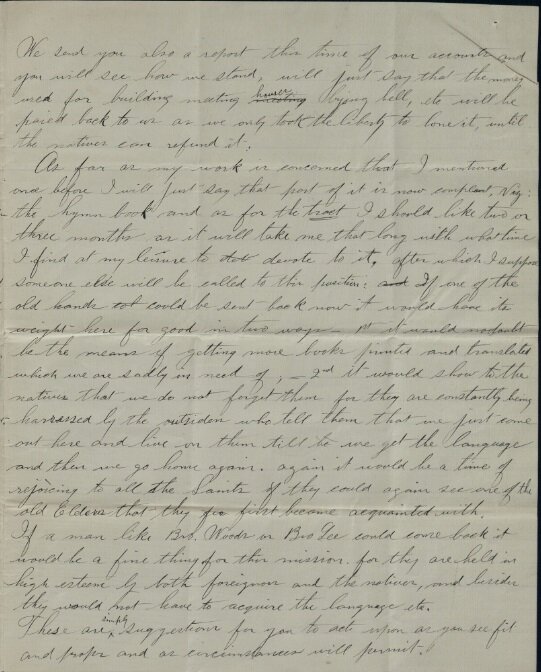 We send you also a report this time of our accounts and
you will see how we stand, will just say that the money
used for building meeting houses bying bell, etc will be
paied back to us as we only took the liberty to lone it, until
the natives can refund it.
As far as my work is concerned that I mentioned
once before I will just say that part of it is now compleat, Viz:
the hymn book and as for the tract I should like two or
three months as it will take me that long with what time
I find at my leisure to devote to it. after which I suppose
someone else will be called to this position. If one of the
old hands could be sent back now it would have its
weight here for good in two ways — 1st it would nodoubt
be the means of getting more books printed and translated
which we are sadly in need of, — 2nd it would show to the
natives that we do not forget them for they are constantly being
harressed by the outsiders who tell them that we just come
out here and live on them till we get the language
and then we go home again. again it would be a time of
rejoicing to all the Saints if they could again see one of the
old Elders that they first became acquainted with.
If a man like Bro. Wood or Bro Lee could come back it
would be a fine thing for this mission. for they are held in
high esteem by both foreignor and the natives, and besides
they would not have to acquire the language etc.
These are simply suggestions for you to act upon as you see fit
and proper and as circumstances will permit.